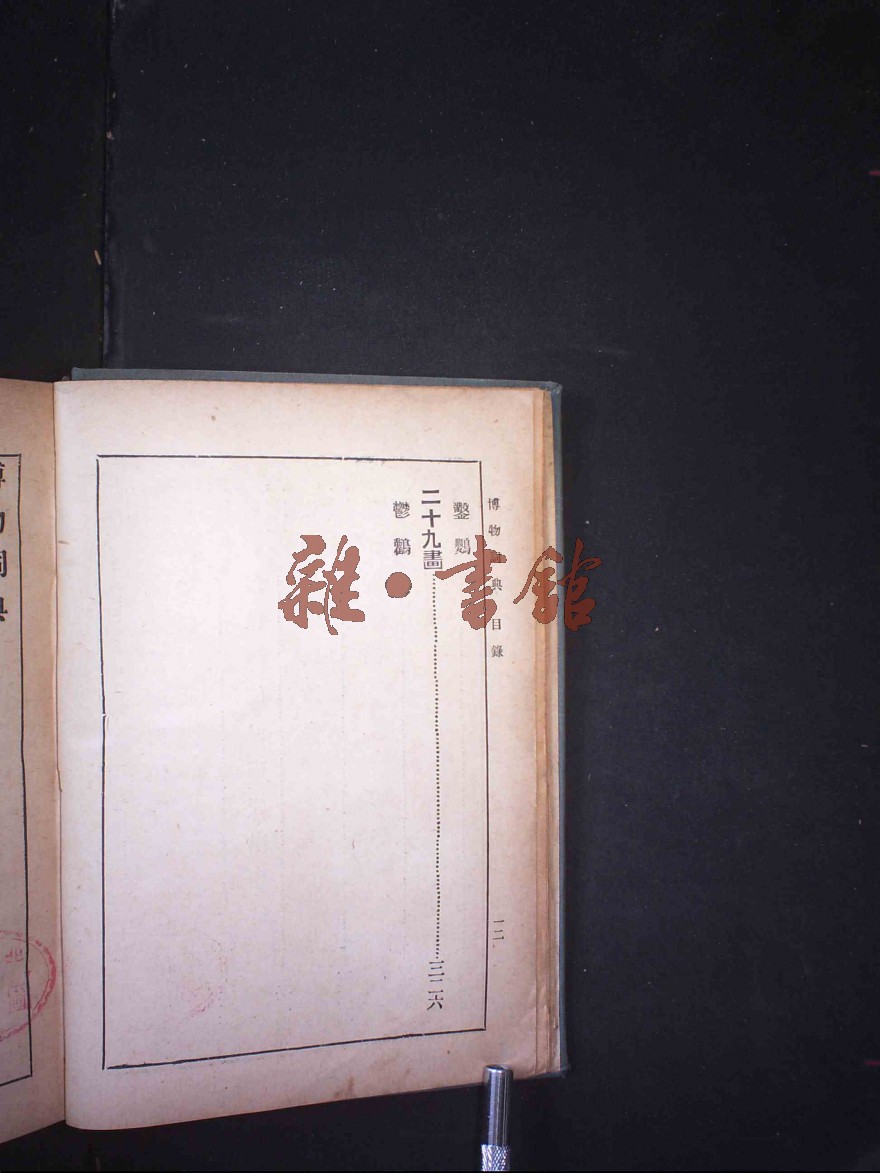 博物詞典 目錄 一二
鑿 鸚
二十九畫……三二六
鬱 鸛
雜·書館
博物詞典